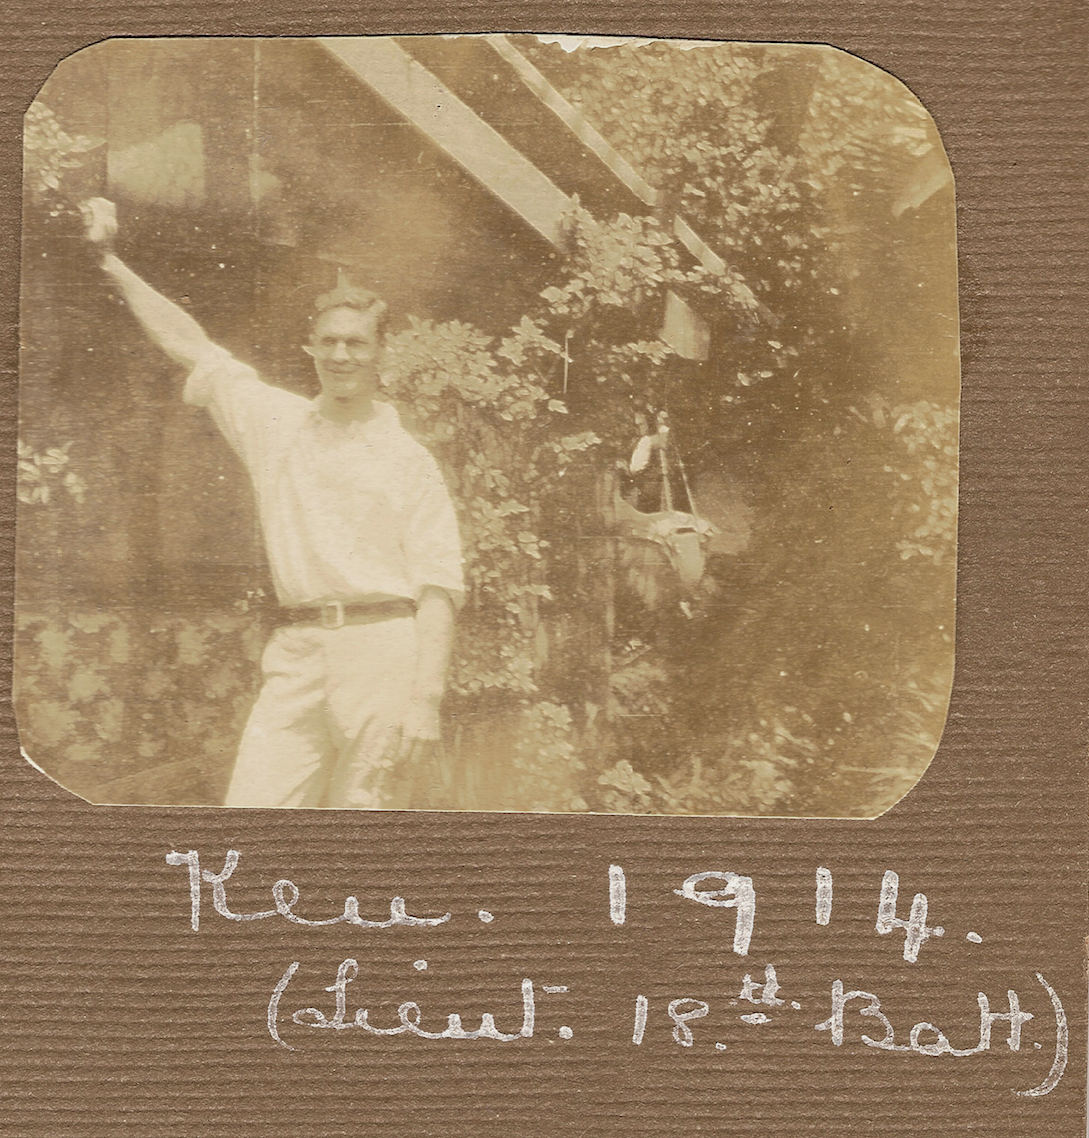 Ken. 1914.
(Lieut. 18th. Batt.)